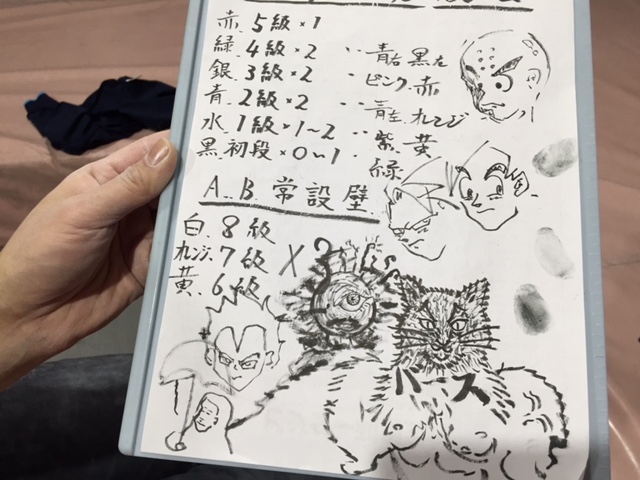 赤. 5級×1
緑. 4級×2 ・・青右 黒左
銀. 3級×2 ・・ピンク. 赤
青. 2級×2 ・・青左 オレンジ
水. 1級×1~2 ・・紫. 黄
黒. 初段×0~1 緑
A. B. 常設壁
白. 8級
オレンジ. 7級 ×
黄. 6級
ハース